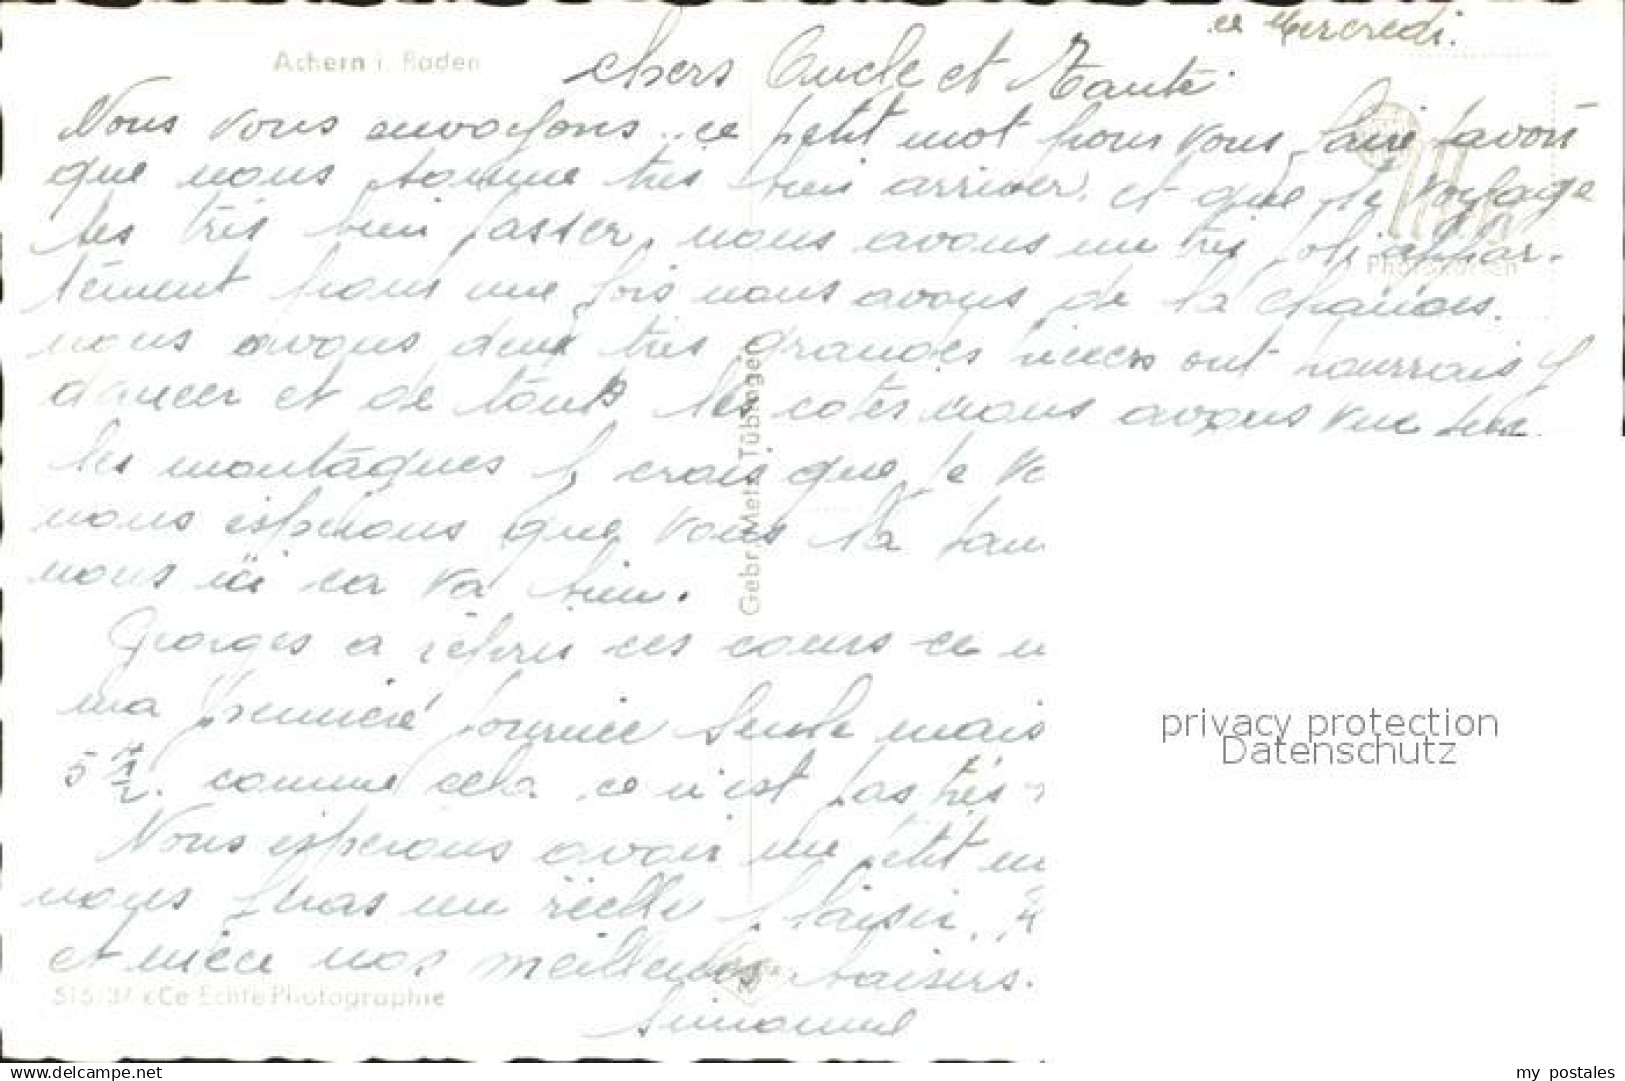 ce Mercredi.
Achern i. Baden
chers Oncle et Tante
Nous vous envoyons ce petit mot pour vous faire savoir
que nous somme très bien arriver, et que le voyage
ses très bien passer, nous avons un très joli appar-
tément pour une fois nous avons de la chances.
nous avons deux très grandes pièces ont pourrais y
dancer et de touts les cotés nous avons vue sur
les montagnes je crois que je vo
nous espérons que vous la
nous ici ca va bien.
Georges a répris ces cours ce
ma premieré journée seule mais
5 1/2. comme cela ce n'est pas très
Nous espérons avoir un petit m
nous feras un réelle plaisir.
et nièce nos meilleures baisers.
Simonne
Gebr. Metz Tübingen
515/37 cCe Echte Photographie
privacy protection
Datenschutz
www.delcampe.net
my_postales